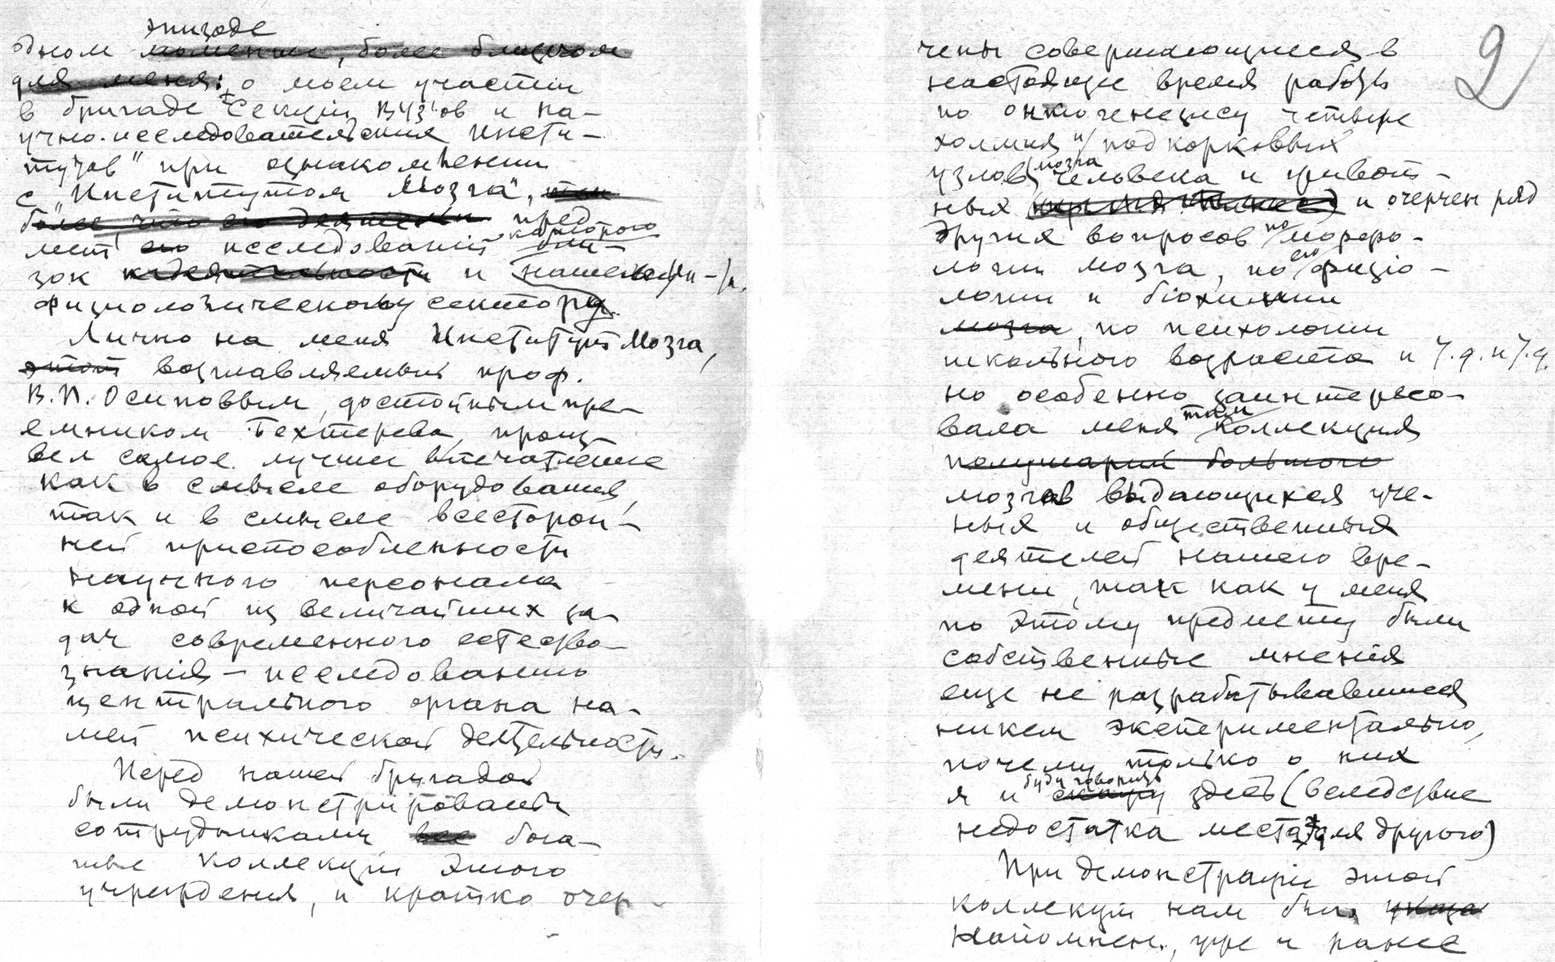 эпизоде
одном моменте, более близком
для меня: о моем участии
в бригаде "Секции ВУЗ'ов и на-
учно-исследовательских инсти-
тутов" при ознакомлении
с "Институтом Мозга",
более что его
пред
мет его исследований которого бли-
зок к деятельности и нашему
физиологическому сектору.
Лично на меня Институт Мозга,
этот возглавляемый проф.
В.П. Осиповым, достойным пре-
емником Бехтерева, произ-
вел самое лучшее впечатление
как в смысле оборудования,
так и в смысле всесторон-
ней приспособленности
научного персонала
к одной из величайших за-
дач современного естество-
знания — исследованию
центрального органа на-
шей психической деятельности.
Перед нашей бригадой
были демонстрированы
сотрудниками все бога-
тые коллекции этого
учреждения, и кратко очер-
2
чены совершающиеся в
настоящее время работы
по онтогенезису четверо
холмия и подкорковых
узлов мозга человека и живот-
ных и очерчен ряд
других вопросов по морфо-
логии мозга, по его физіо-
логии и біохимии
мозга, по психологии
школьного возраста и т.д. и т.д.
но особенно заинтересо-
вала меня там коллекция
полушарий большого
мозгов выдающихся уче-
ных и общественных
деятелей нашего вре-
мени, так как у меня
по этому предмету были
собственные мнения
еще не разрабатывавшиеся
никем экспериментально,
почему только о них
я и буду говорить скажу здесь (вследствие
недостатка места для другого)
При демонстрации этой
коллекции нам был
напомнен, уже и ранее